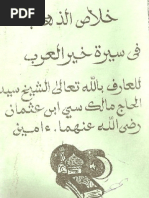 خلاص الذهب
فى سيرة خير العرب
للعارف بالله تعالى الشيخ سيد
الحاج مالك سي ابن عثمان
رضى الله عنهما ، ءامين